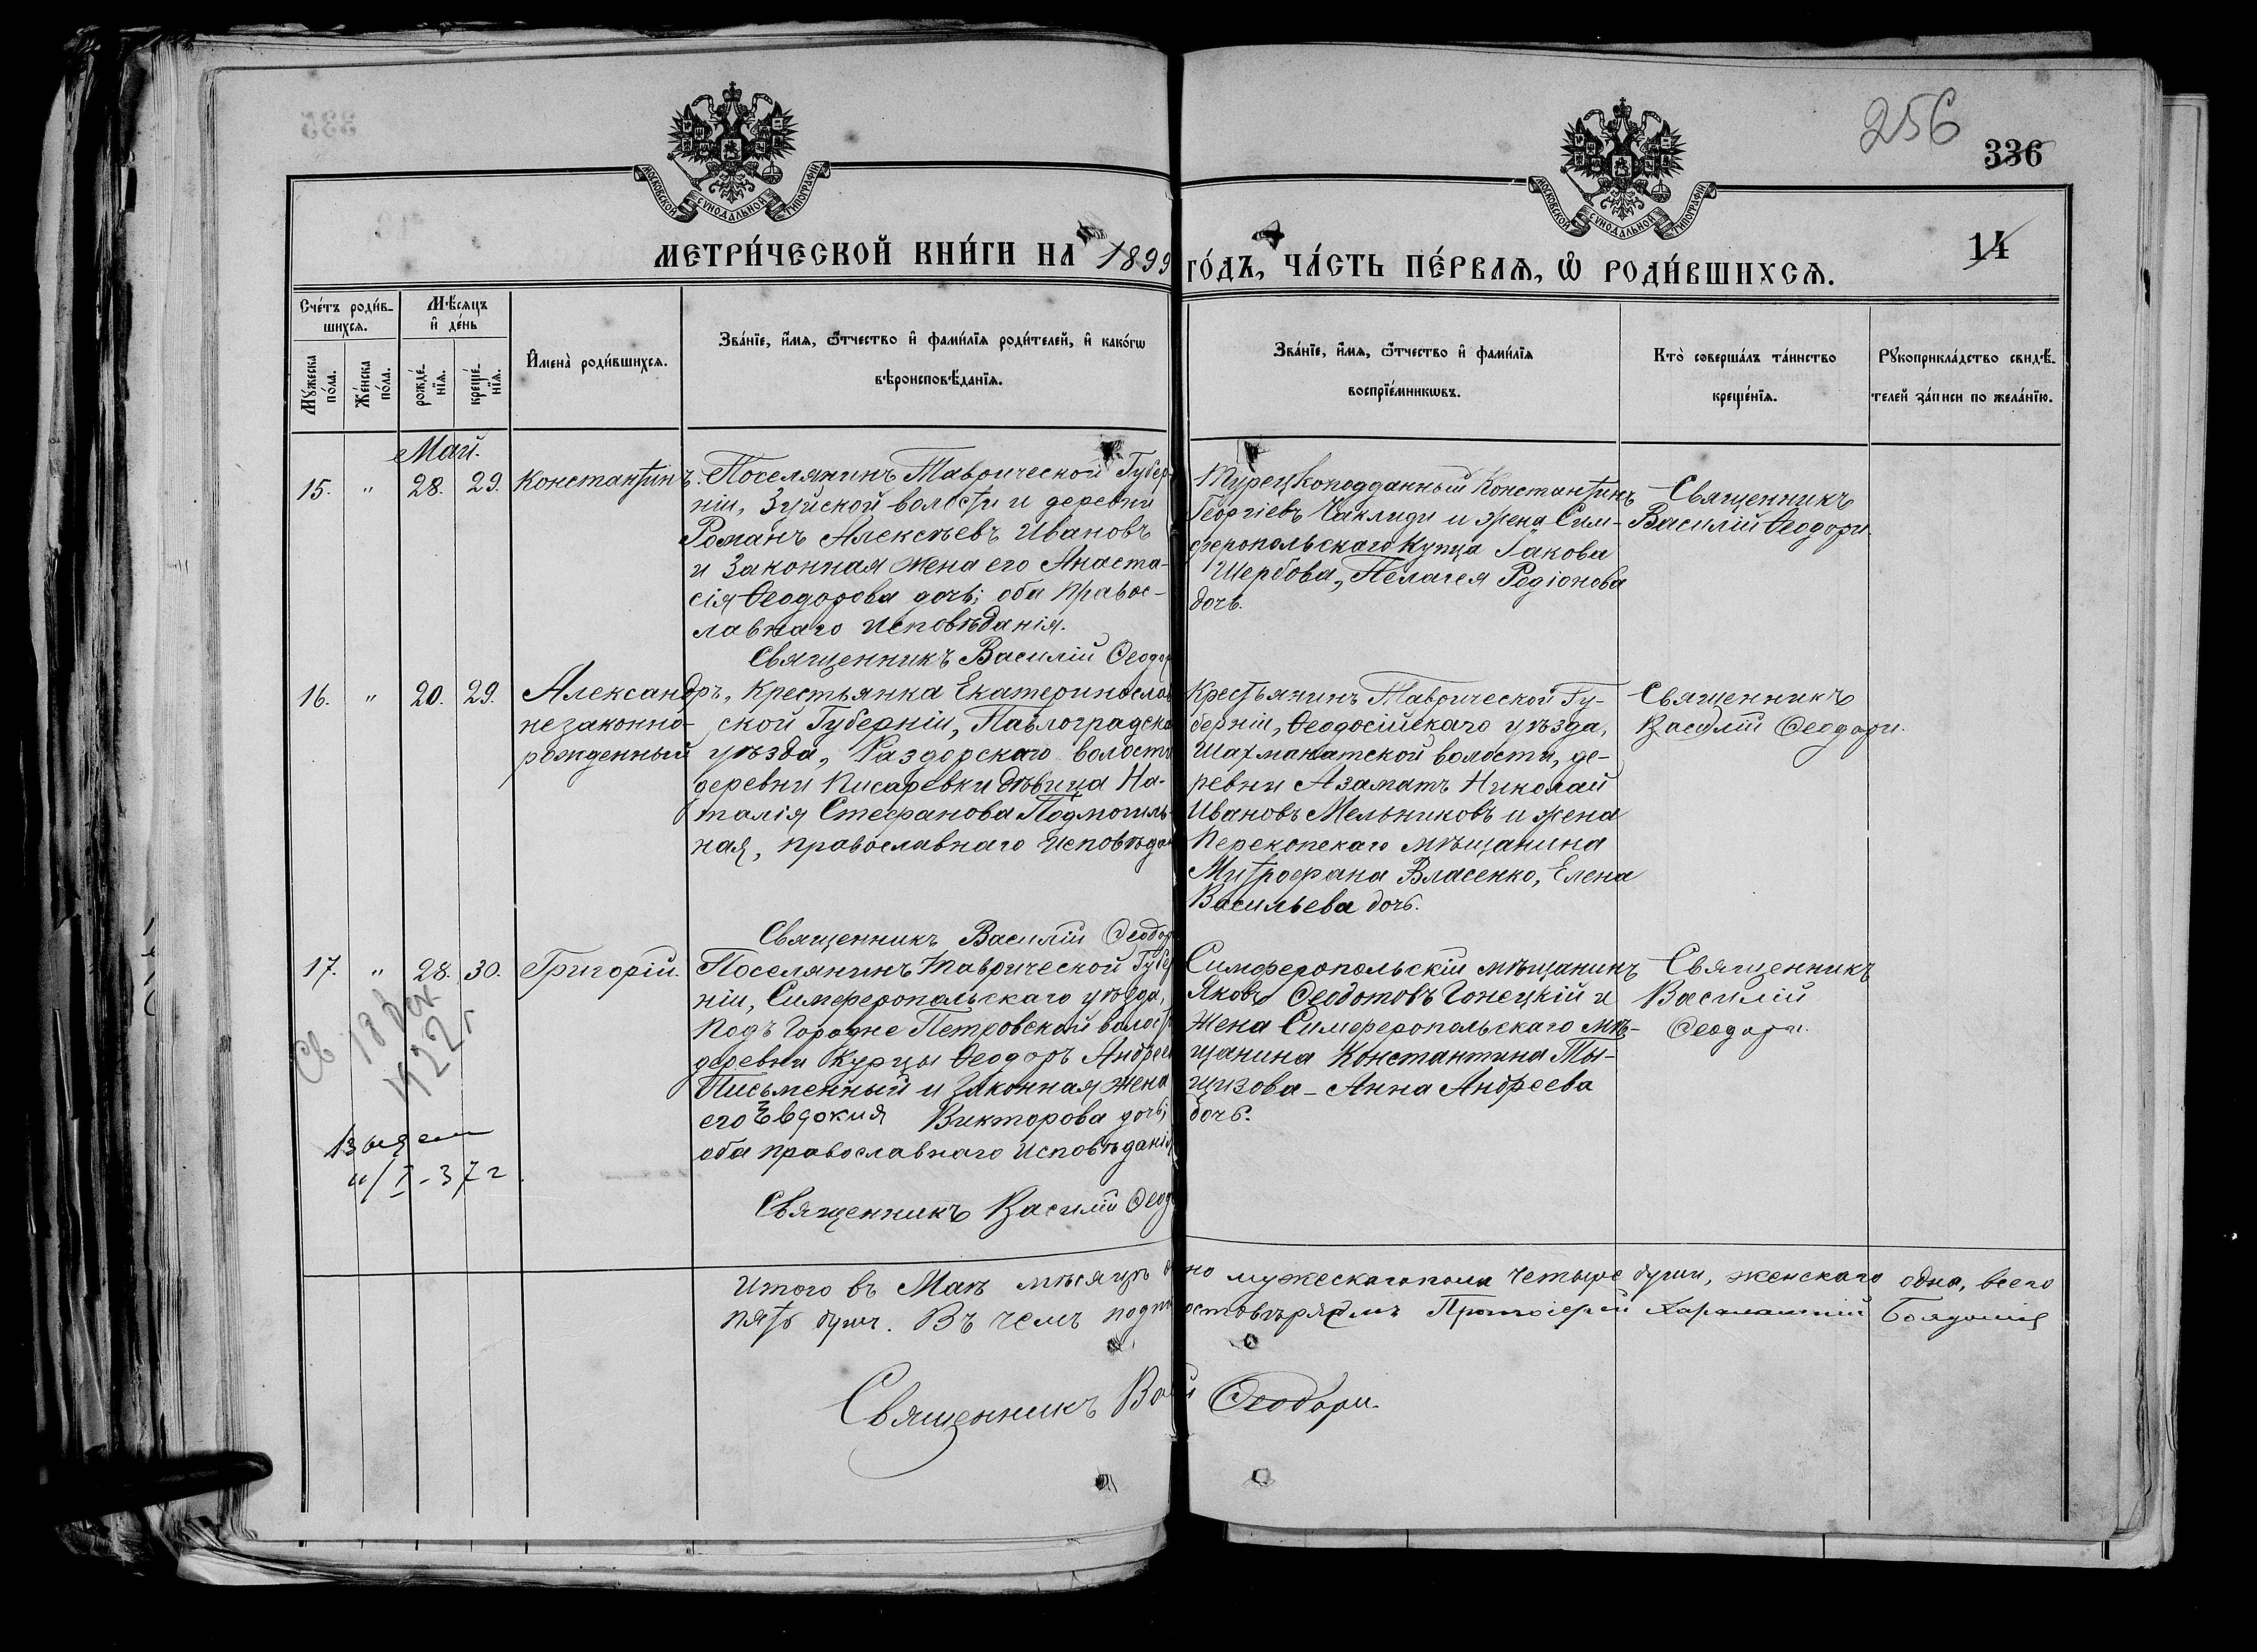 256
336
14
МОСКОВСКОЙ СѴНОДАЛЬНОЙ ТИПОГРАФІИ
МОСКОВСКОЙ СѴНОДАЛЬНОЙ ТИПОГРАФІИ
МЕТРИ́ЧЕСКОЙ КНИ́ГИ НА 1899 ГО́ДЪ, ЧА́СТЬ ПЕ́РВАѦ, Ѽ РОДИ́ВШИХСѦ.
Сче́тъ роди́в-
шихсѧ.
Мѣ́сѧцъ
и҆ де́нь
Мꙋ́жеска
по́ла.
Же́нска
по́ла.
рожде́-
нїѧ.
креще́-
нїѧ.
И҆мена̀ роди́вшихсѧ.
Зва́нїе, и҆́мѧ, ѻ҆́тчество и҆ фами́лїѧ роди́телей, и҆ како́гѡ
вѣроисповѣ́данїѧ.
Зва́нїе, и҆́мѧ, ѻ҆́тчество и҆ фами́лїѧ
воспрїе́мникѡвъ.
Кто̀ соверша́лъ та́инство
креще́нїѧ.
Рꙋкоприкла́дство свидѣ́-
телей за́писи по жела́нїю.
Май.
15. " 28. 29. Константинъ.
Поселянинъ Таврической Губер-
ніи, Зуйской волости и деревни
Романъ Алексѣевъ Ивановъ
и законная жена его Анаста-
сія Ѳеодорова дочь; оба правос-
лавнаго исповѣданія.
Священникъ Василій Ѳеодор
Турецкоподданный Константинъ
Георгіевъ Чаклиди и жена Сим-
феропольскаго купца Іакова
Щербова, Пелагея Родіонова
дочь.
Священникъ
Василій Ѳеодори.
16. " 20. 29. Александръ,
незаконно-
рожденный
Крестьянка Екатеринослав
ской Губерніи, Павлоградска
уѣзда, Раздорскаго волости
деревни Писаревки дѣвица На-
талія Стефанова Подмогиль-
ная, православнаго исповѣдан
Священникъ Василій Ѳеодор
Крестьянинъ Таврической Гу-
берніи, Ѳеодосійскаго уѣзда,
Шахманатской волости, де-
ревни Азаматъ Николай
Ивановъ Мельниковъ и жена
Перекопскаго мѣщанина
Митрофана Власенко, Елена
Васильева дочь.
Священникъ
Василій Ѳеодори.
17. " 28. 30. Григорій.
Поселянинъ Таврической Губер
ніи, Симферопольскаго уѣзда,
Подъ Городне Петровской волост
деревни Курцы Ѳеодоръ Андрее
Письменный и законная жена
его Евдокия Викторова дочь;
оба православнаго исповѣданія
Священникъ Василій Ѳеод
Симферопольскій мѣщанинъ
Яковъ Ѳеодотовъ Гонецкій и
жена Симферопольскаго мѣ-
щанина Константина Ты-
щизова - Анна Андреева
дочь.
Священникъ
Василій
Ѳеодори.
Св
1922 г
/I-37 г.
Итого въ Маѣ мѣсяцѣ но мужескаго пола четыре души, женскаго одна, всего
пять душъ. Въ чемъ остовѣряемъ Протоіерей
Священникъ Ва Ѳеодори.